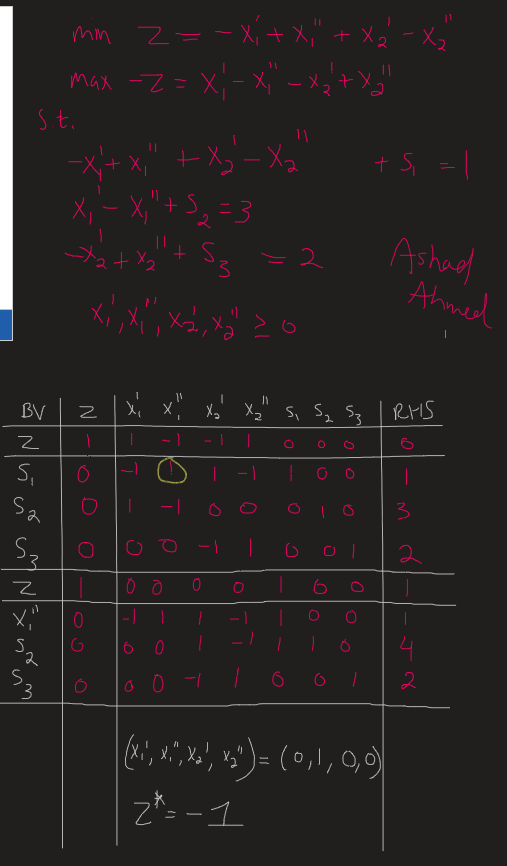 min Z = -x₁' + x₁'' + x₂' - x₂''
max -Z = x₁' - x₁'' - x₂' + x₂''
s.t.
-x₁' + x₁'' + x₂' - x₂'' + S₁ = 1
x₁' - x₁'' + S₂ = 3
-x₂' + x₂'' + S₃ = 2
Ashad
Ahmed
x₁', x₁'', x₂', x₂'' ≥ 0
BV Z x₁' x₁'' x₂' x₂'' S₁ S₂ S₃ RHS
Z 1 1 -1 -1 1 0 0 0 0
S₁ 0 -1 1 1 -1 1 0 0 1
S₂ 0 1 -1 0 0 0 1 0 3
S₃ 0 0 0 -1 1 0 0 1 2
Z 1 0 0 0 0 1 0 0 1
x₁'' 0 -1 1 1 -1 1 0 0 1
S₂ 0 0 0 1 -1 1 1 0 4
S₃ 0 0 0 -1 1 0 0 1 2
(x₁', x₁'', x₂', x₂'') = (0, 1, 0, 0)
Z* = -1